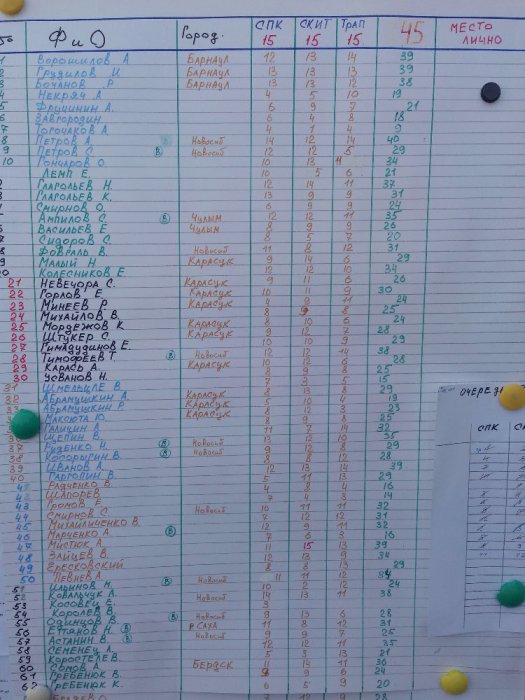 № Ф И О Город. СПК СКИТ ТРАП 45 МЕСТО ЛИЧНО
15 15 15
1 Ворошилов А БАРНАУЛ 12 13 14 39
2 Грудилов И БАРНАУЛ 13 13 13 39
3 Бочанов Р БАРНАУЛ 13 13 12 38
4 Некряч А 4 5 10 19
5 6 9 7 21
6 Завгородин 6 4 8 18
7 Тогочаков А 4 1 4 9
8 Петров А Новосиб 14 12 14 40
9 Петров С В Новосиб 12 12 5 29
10 Гончаров О. 10 13 11 34
Лемп Е. 10 5 6 21
Глагольев Н. 12 14 11 37
Глагольев К. 13 9 9 31
Смирнов О. 6 9 9 24
Ампилов С. В Чулым 12 12 11 35
Васильев Е Чулым 8 9 9 26
Сидоров С. 8 5 7 20
Февраль В. Новосиб 11 8 12 31
Малый Н КАРАСУК 9 14 6 29
20 Колесников Е. 12 12 10 34
21 Невечора С. КАРАСУК 9 11 6 26
22 Горлов Г КАРАСУК 10 11 9 30
23 Минеев Р КАРАСУК 4 9 11 24
24 Михайлов В. 8 9 8 25
25 Мордежов К КАРАСУК 8 10 6 24
26 Штукер С КАРАСУК 9 12 7 28
27 Гимадудинов Е. 10 10 9 29
28 Тимофеев Т. В Новосиб 12 12 14 38
29 Карась А. КАРАСУК 10 12 6 28
30 Усванов Н. 8 9 8 25
31 Шмельцле В. 7 3 5 15
32 Абрамушкин А. КАРАСУК 8 13 8 29
33 Абрамушкин Р. КАРАСУК 5 10 4 19
Максюта Ю. КАРАСУК 8 12 3 23
Галицин А 8 9 8 25
Щепин В. 11 7 14 32
37 Руденко Н. В Новосиб 13 12 10 35
38 Косорыгин В. В Новосиб 9 12 8 29
39 Иванов А. 8 8 12 28
40 Гаргопин В. 12 13 14 39
Радченко В. 5 11 13 29
42 Шапорев 4 8 4 16
43 Громов Е 7 4 3 14
44 Смирнов С. Новосиб 10 11 11 32
45 Михайличенко В. 7 12 12 31
46 Марченко А. В 12 9 11 32
47 Мистюк А. 7 6 3 16
48 Зайцев В. 11 15 13 39
49 Ересковский 12 13 9 34
50 Певнев А 8 8 13 29
51 Ильиных Н В Новосиб 11 11 12 34
52 Ковальчук А. 10 2 12 24
53 Косовец Е. Новосиб 14 13 11 38
54 Королев В. 3
55 Одинцов В. В Новосиб 9 13 6 28
56 Еттянов Н В р. САХА 11 8 12 31
57 Астанин В. В Новосиб 9 9 7 25
58 Семенец А 12 12 11 35
59 Коростелев 5 3 13 21
60 Сомов А. БЕРДСК 11 14 11 36
61 Гребенюк В. 9 9 6 24
62 Гребенюк К. 6 5 9 20
28
ОЧЕРЕ
СПК